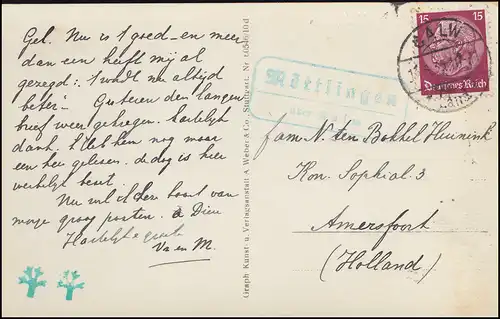 Gel. Nu is 't goed – en meer
dan een heeft mij al
gezegd: 't wordt nu altijd
beter – Gisteren den langen
brief weer gekregen. Hartelijk
dank. 'k Heb hem nog maar
een keer gelezen. De dag is hier
werkelijk bezet.
Nu wil ik deze kaart van
morge graag posten. à Dieu
Hartelijk
Va en M.
Graph. Kunst- u. Verlagsanstalt A. Weber & Co., Stuttgart, Nr.
Möttlingen
über Calw
15 15
Deutsches Reich
CALW
fam. N. ten Bokkel Huinink
Kon. Sophial. 3
Amersfoort
(Holland)